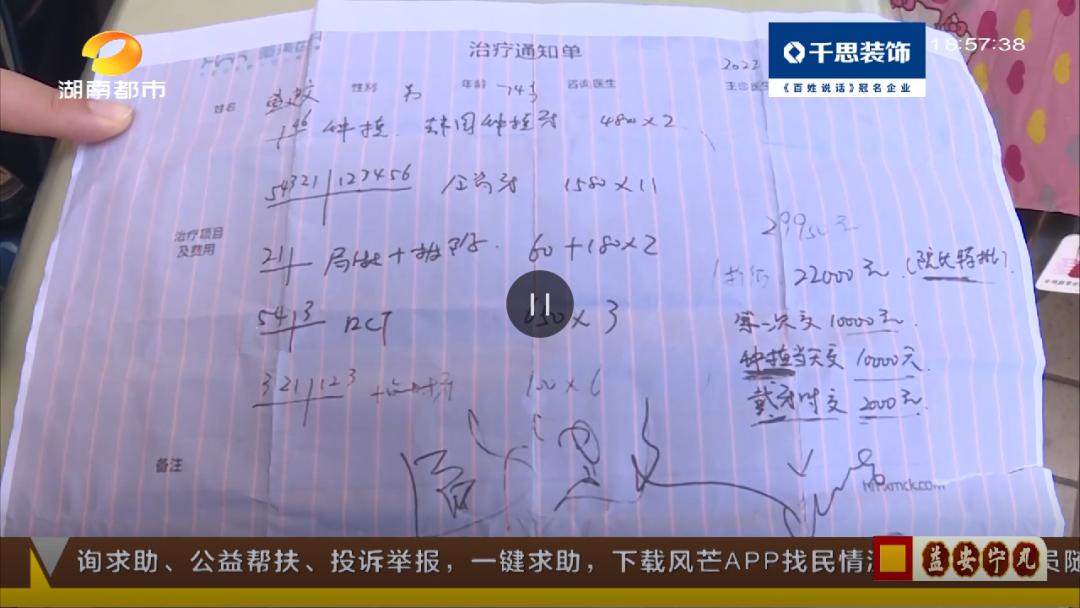 湖南都市
治疗通知单
千思装饰
《百姓说话》冠名企业
18:57:38
2022
姓名 性别 男 年龄 74岁 咨询医生 主诊医生
46 种植 韩国种植牙 4800×2
54321 123456 全瓷牙 1580×11
治疗项目
及费用
21 局麻+拔牙 60+180×2
54 3 RCT 650×3
321 123 100×6
29950元
折后 22000元 (院长特批)
第一次交 10000元
种植当天交 10000元
戴牙时交 2000元
备注
询求助、公益帮扶、投诉举报，一键求助，下载风芒APP找民情
益安宁丸
员随